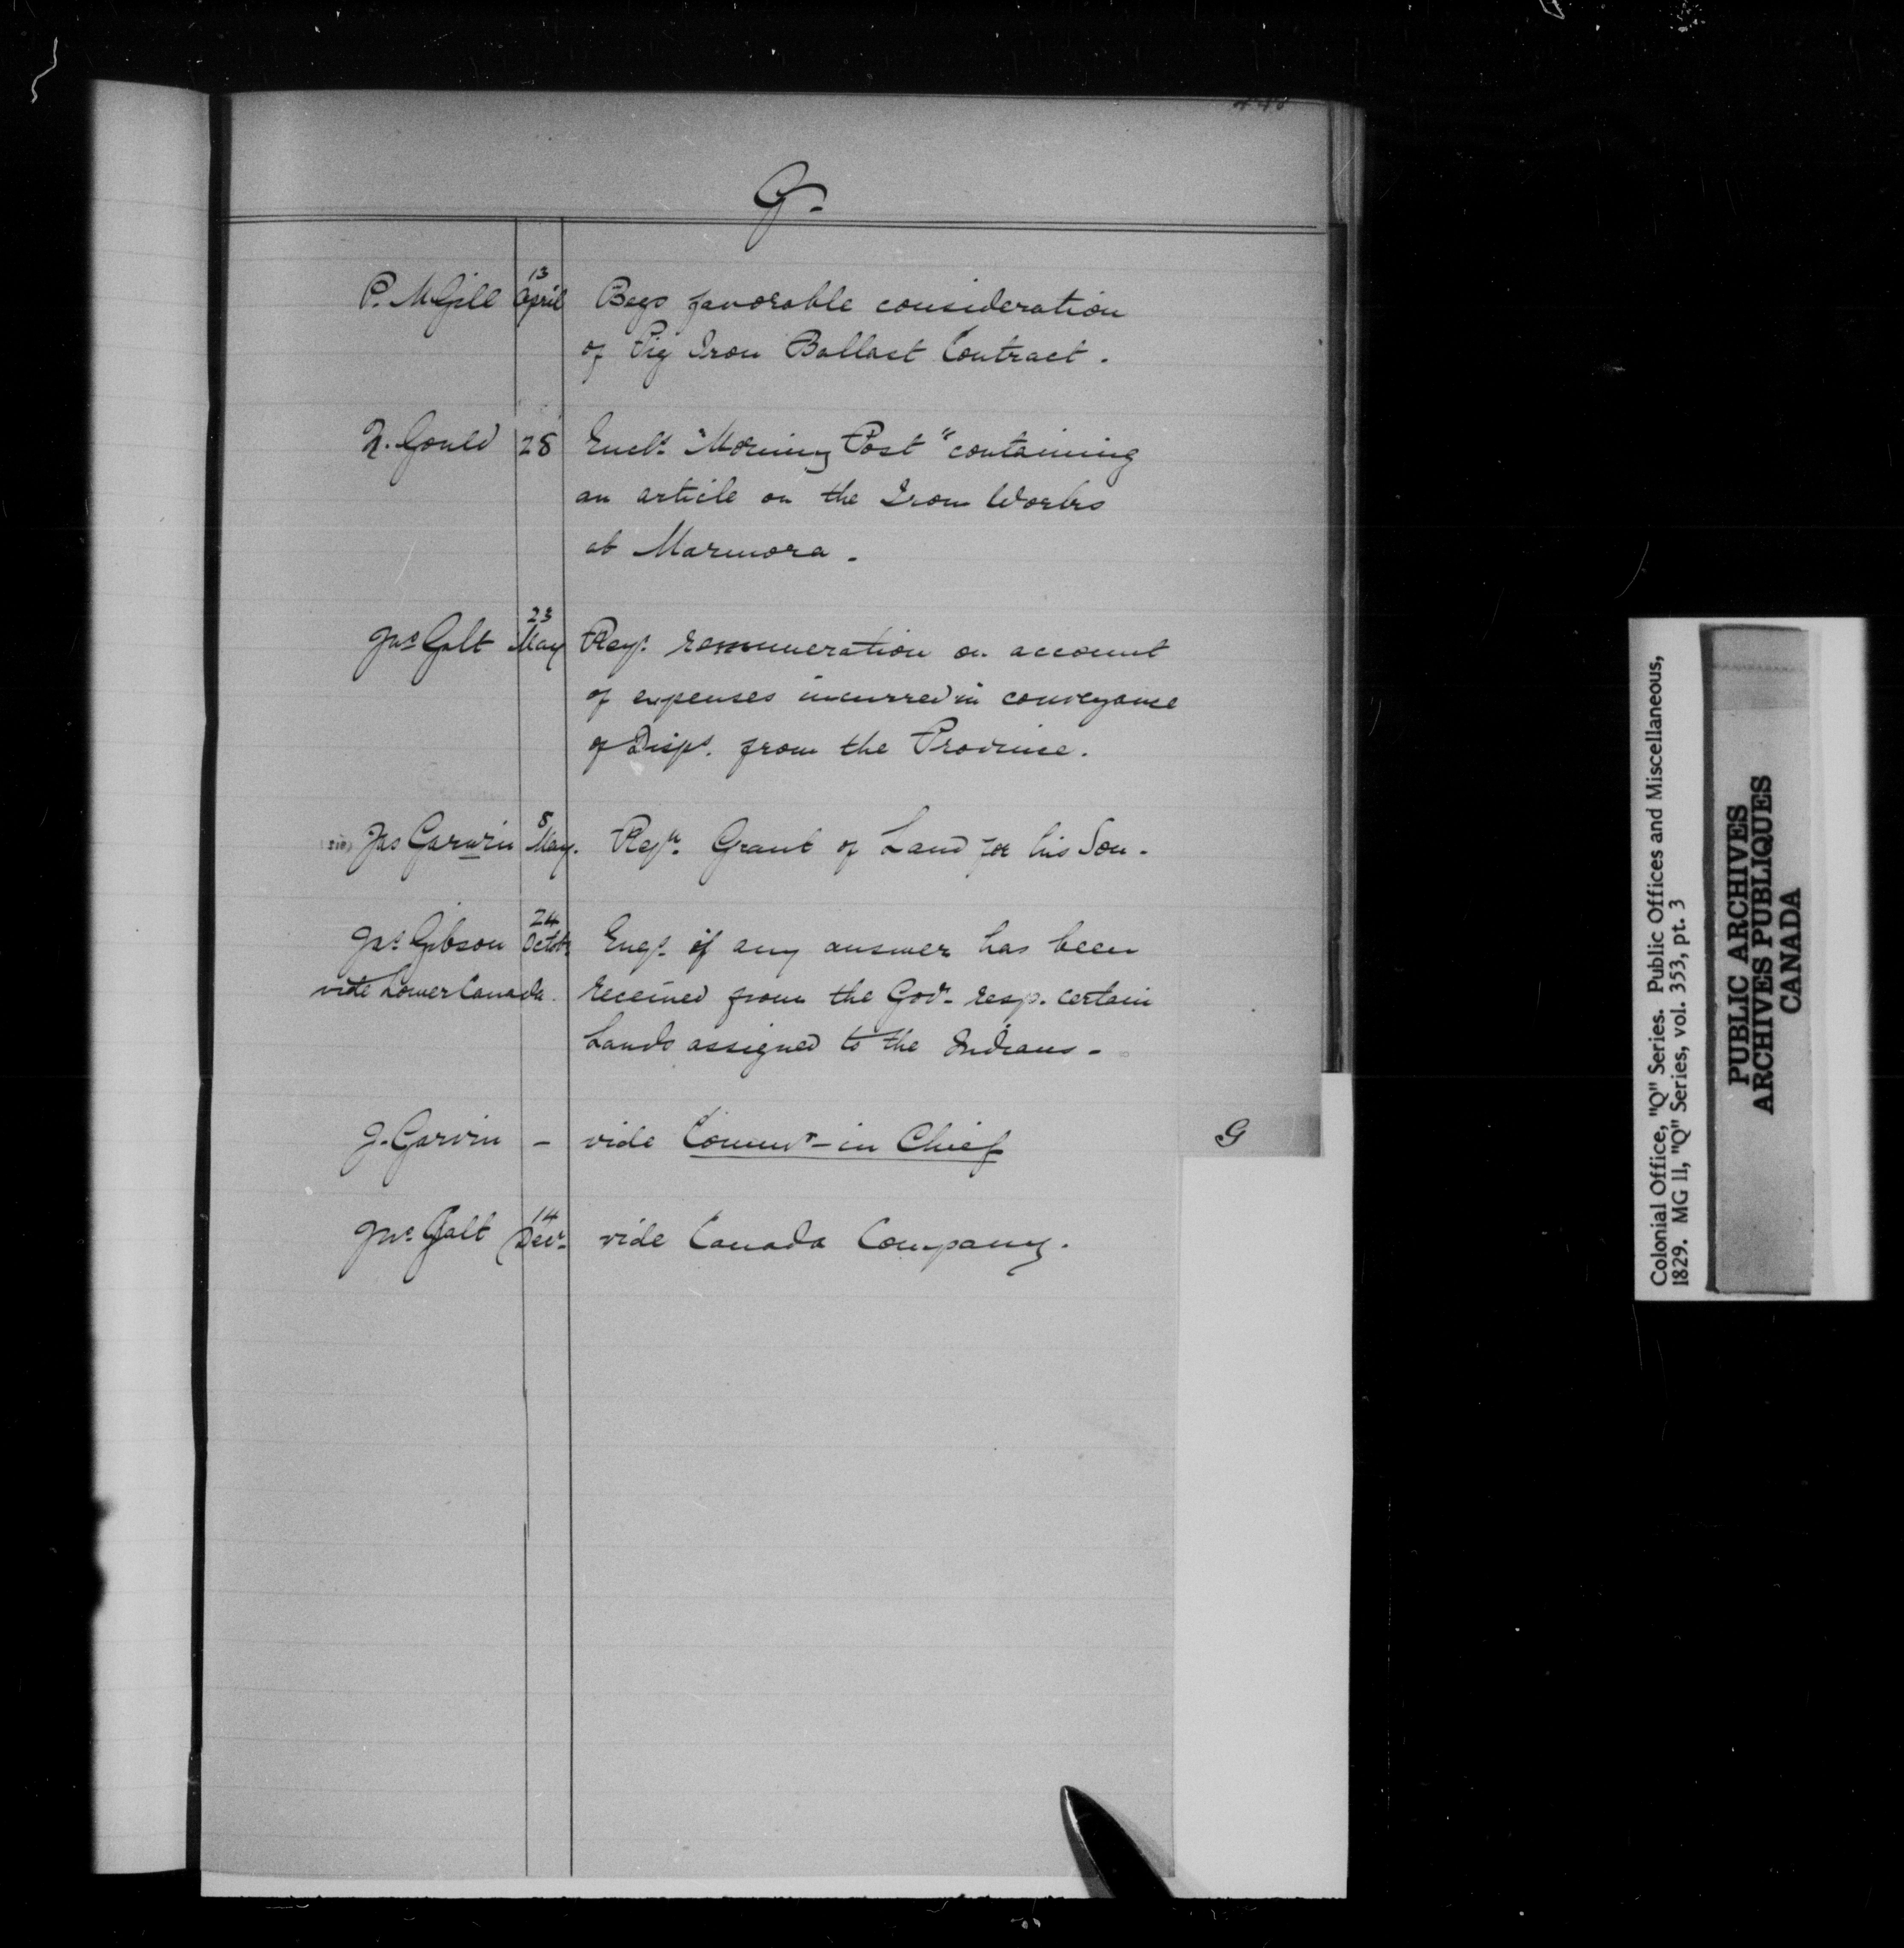 G.
P. McGill 13 April Begs favorable consideration
of Pig Iron Ballast Contract.
N. Gould 28 Encls. "Morning Post" containing
an article on the Iron Works
at Marmora.
Jno Galt 23 May Reqs. remuneration on account
of expenses incurred in conveyance
of Disps. from the Province.
(sic) Jas Garwin 8 May. Reqs. Grant of Land for his Son.
Jas Gibson 24 Octobr Enqs. if any answer has been
vide Lower Canada. received from the Govr. resp. certain
Lands assigned to the Indians.
J. Garvin - vide Commr-in Chief
G
Jno Galt 14 Decr. vide Canada Company.
Colonial Office, "Q" Series. Public Offices and Miscellaneous,
1829. MG 11, "Q" Series, vol. 353, pt. 3
PUBLIC ARCHIVES
ARCHIVES PUBLIQUES
CANADA